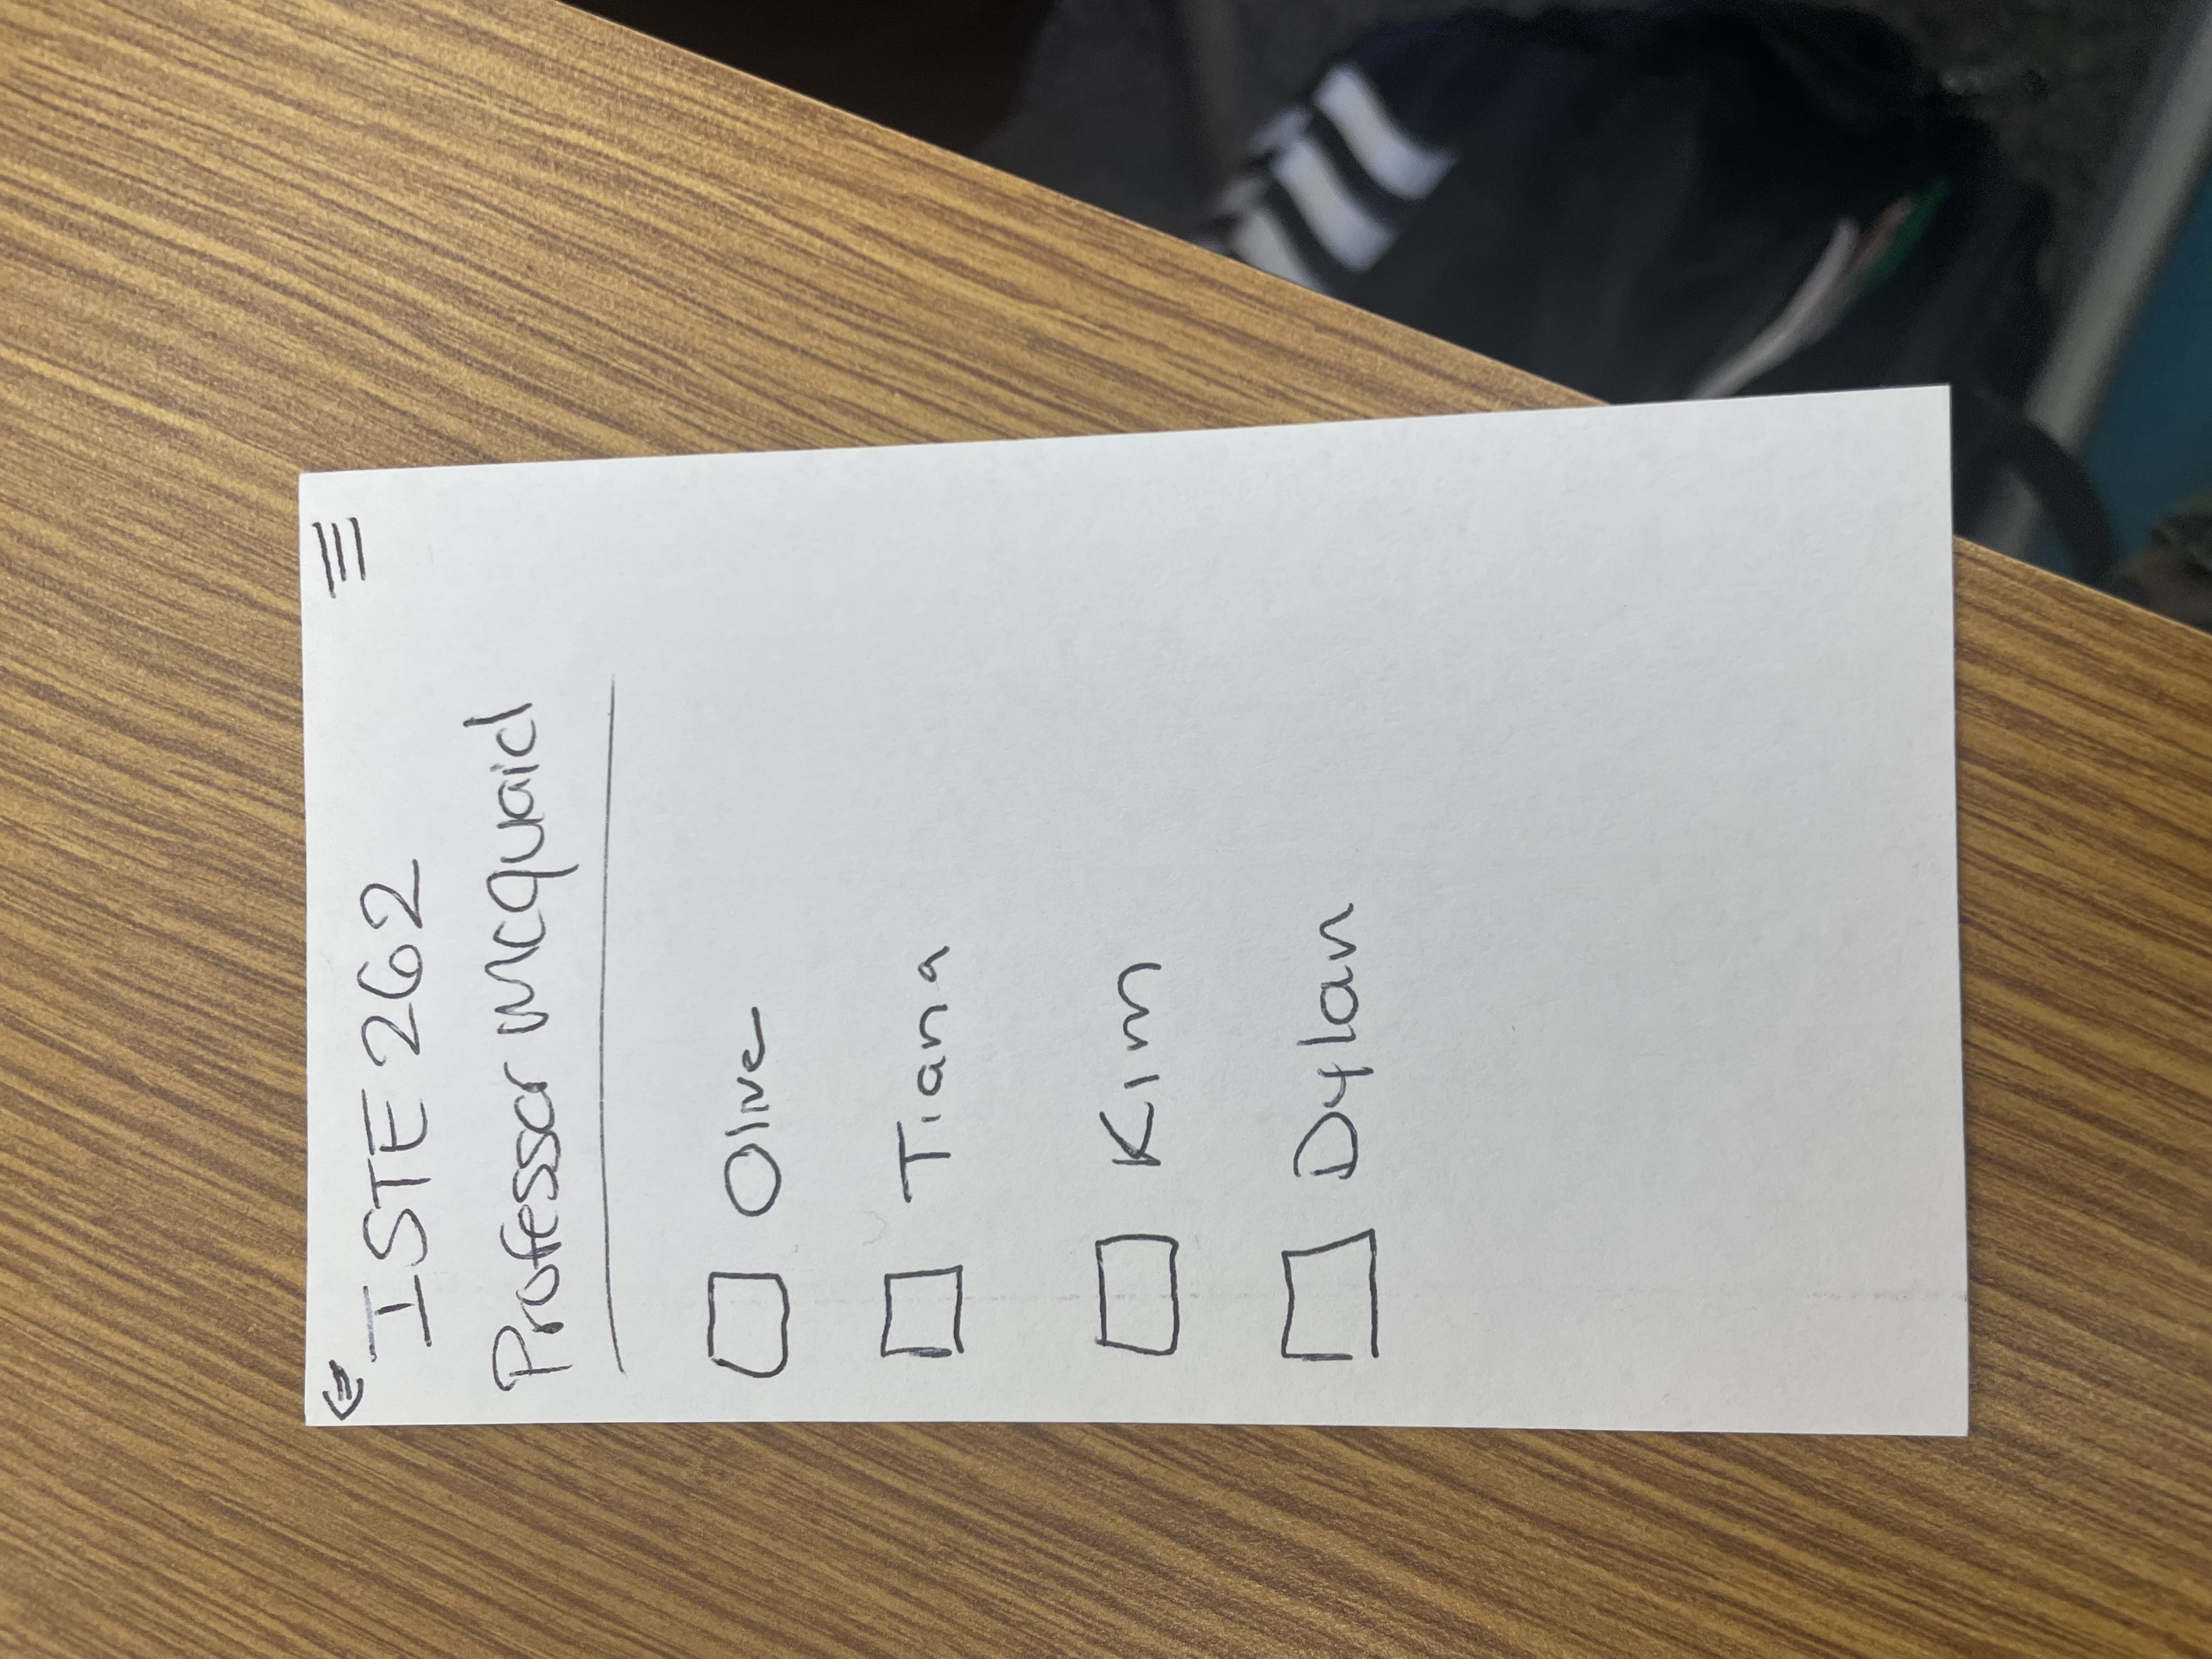 ISTE 262
Professor Mcquaid
Olive
Tiana
Kim
Dylan